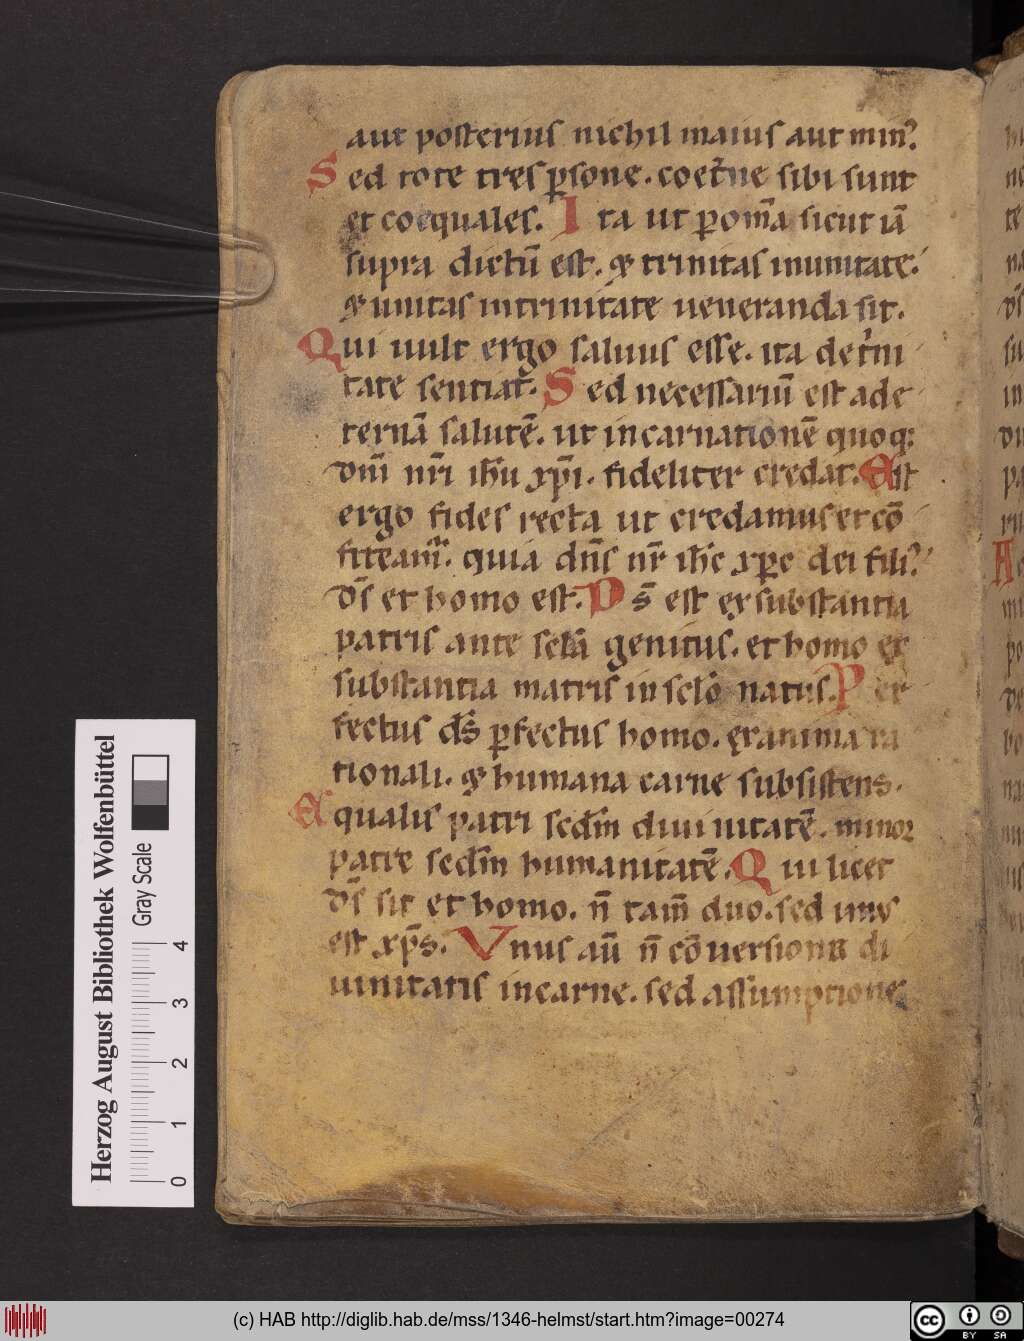 aut posterius nichil maius aut min⁊
Sed tote tres p̱sone. coet̾ne sibi sunt
et coequales. Ita ut ꝑ om̄a sicut iā
supra dictū est. ⁊ trinitas in unitate.
⁊ unitas in trinitate ueneranda sit.
Qui uult ergo saluus esse. ita de t̾ni
tate sentiat. Sed necessariū est ad e
ternā salutē. ut incarnationē quoq;
dn̄i nr̄i ih̄u xp̄i. fideliter credat. Est
ergo fides recta ut credamus et cō
fiteam̾. quia dn̄s nr̄ ih̄c xp̄c dei fili⁊
ds̄ et homo est. Ds̄ est ex substantia
patris ante scl̄a genitus. et homo ex
substantia matris in scl̄o natus. Per
fectus ds̄ ꝑfectus homo. ex anima ra
tionali. ⁊ humana carne subsistens.
Equalis patri scdm̄ diuinitatē. minor
patre scdm̄ humanitatē. Qui licet
ds̄ sit et homo. n̄ tam̄ duo. sed unus
est xp̄s. Vnus aū n̄ cōuersione di
uinitatis in carne. sed assumptione
Herzog August Bibliothek Wolfenbüttel
Gray Scale
0 1 2 3 4
(c) HAB http://diglib.hab.de/mss/1346-helmst/start.htm?image=00274
cc BY SA